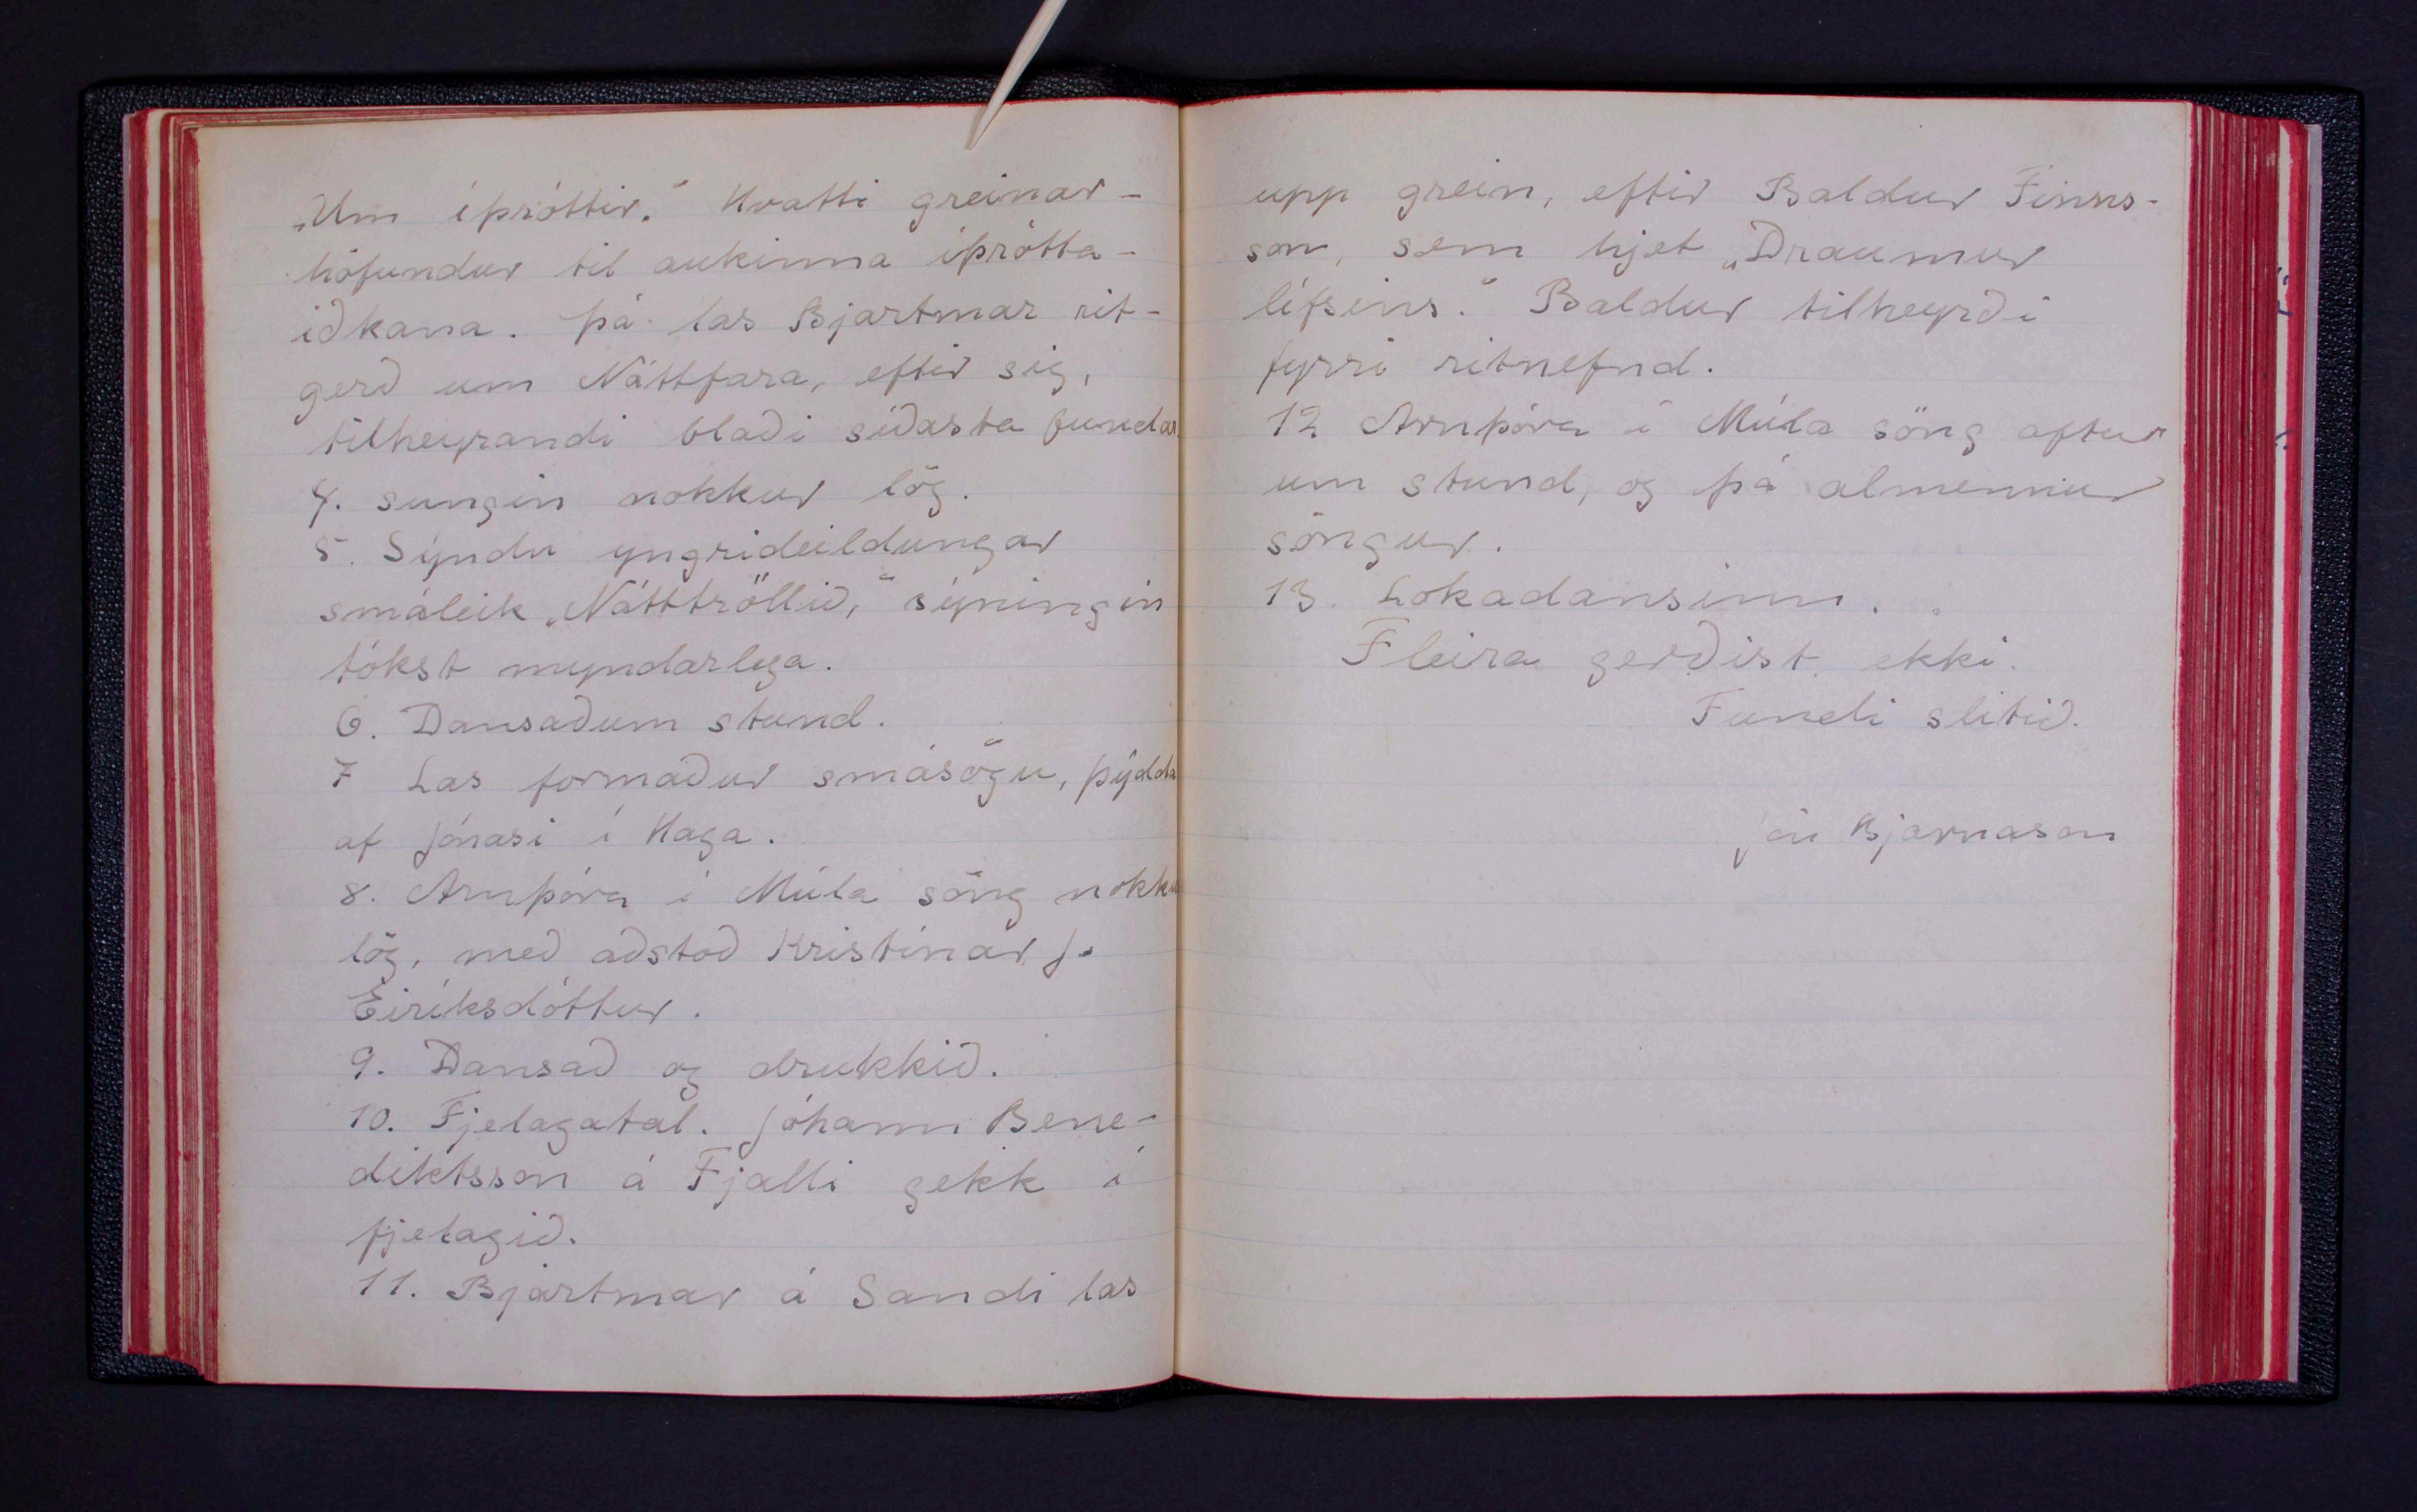 „Um íþróttir.“ Hvatti greinar-
höfundur til aukinna íþrótta-
iðkana. Þá las Bjartmar rit-
gerð um Náttfara, eftir sig,
tilheyrandi blaði síðasta fundar.
4. sungin nokkur lög.
5. Sýndu yngrideildungar
smáleik „Nátttröllið,“ sýningin
tókst myndarlega.
6. Dansað um stund.
7 Las formaður smásögu, þýdda
af Jónasi í Haga.
8. Arnþóra í Múla söng nokkur
lög, með aðstoð Kristínar J.
Eiríksdóttur.
9. Dansað og drukkið.
10. Fjelagatal. Jóhann Bene-
diktsson á Fjalli gekk í
fjelagið.
11. Bjartmar á Sandi las
upp grein, eftir Baldur Finns-
son, sem hjet „Draumur
lífsins.“ Baldur tilheyrði
fyrri ritnefnd.
12 Arnþóra í Múla söng aftur
um stund, og þá almennur
söngur.
13. Lokadansinn.
Fleira gerðist ekki.
Fundi slitið.
Jón Bjarnason